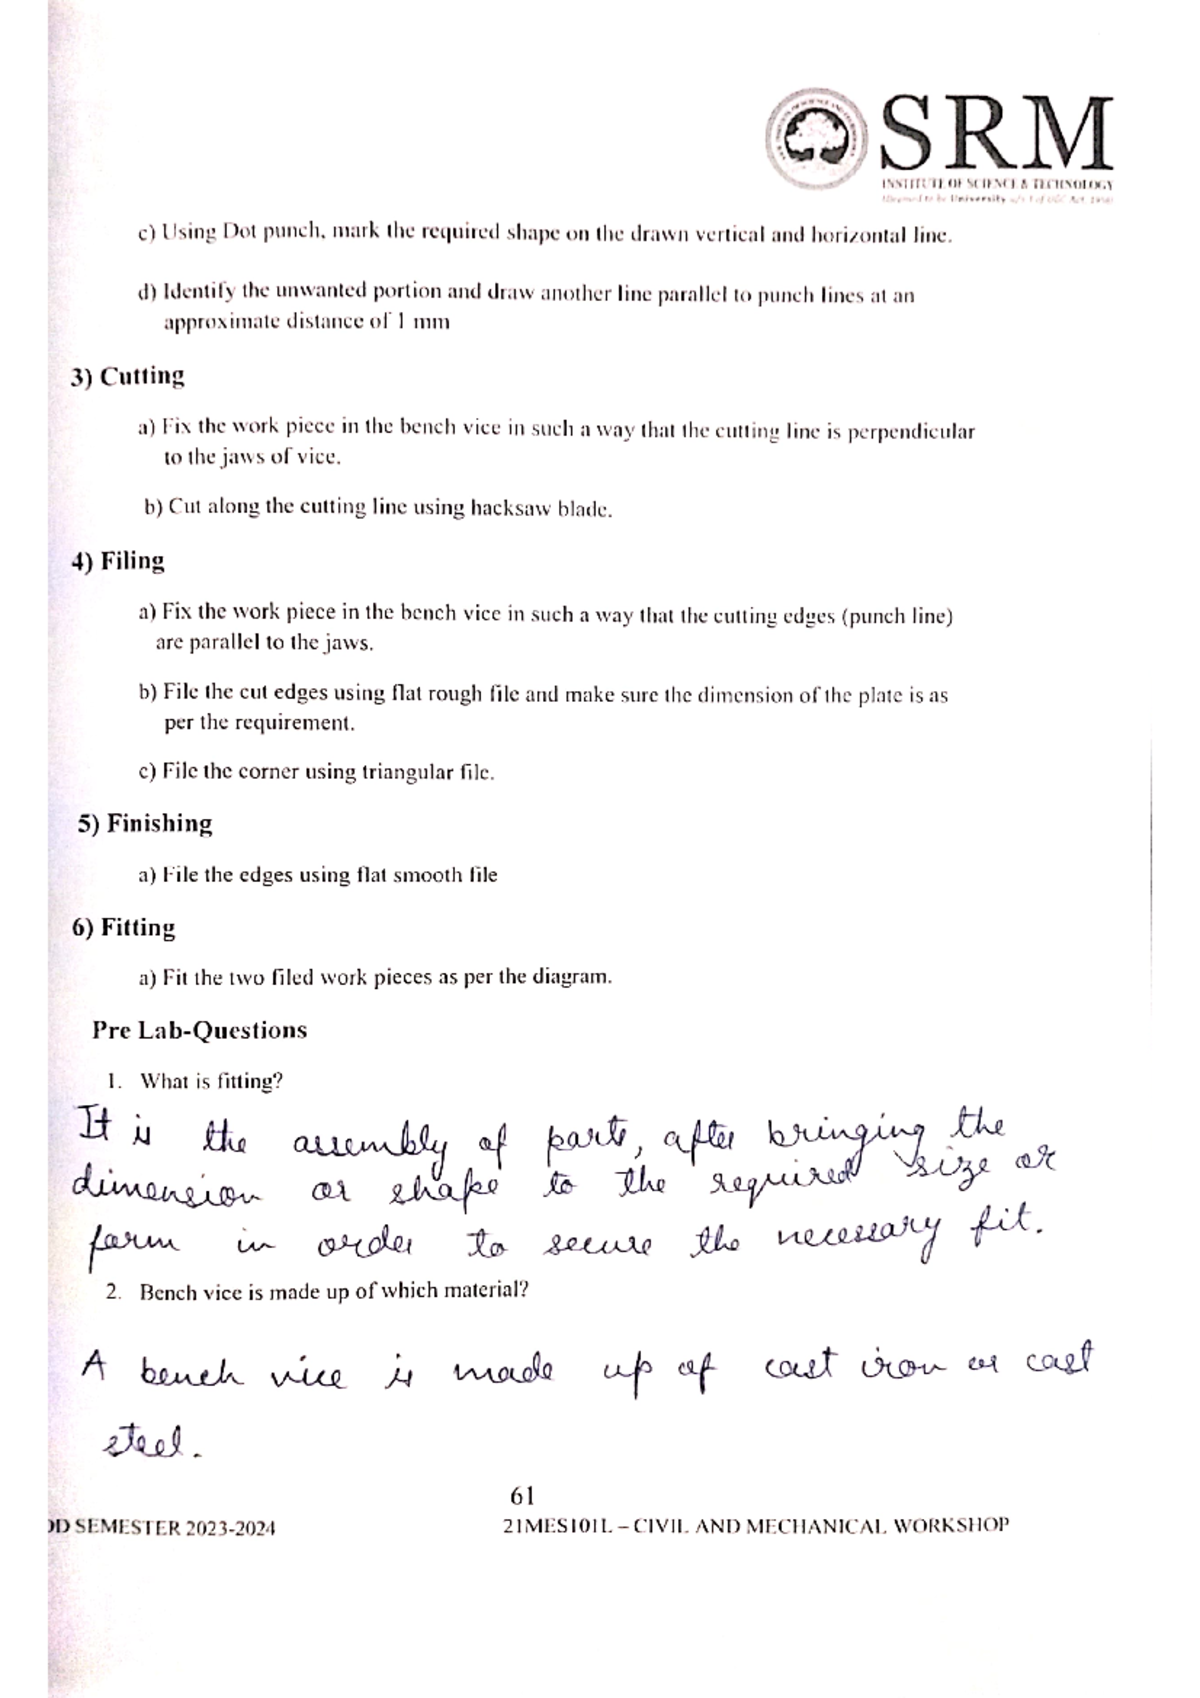 SRM
INSTITUTE OF SCIENCE & TECHNOLOGY
(Deemed to be University u/s 3 of UGC Act, 1956)
c) Using Dot punch, mark the required shape on the drawn vertical and horizontal line.
d) Identify the unwanted portion and draw another line parallel to punch lines at an
approximate distance of 1 mm
3) Cutting
a) Fix the work piece in the bench vice in such a way that the cutting line is perpendicular
to the jaws of vice.
b) Cut along the cutting line using hacksaw blade.
4) Filing
a) Fix the work piece in the bench vice in such a way that the cutting edges (punch line)
are parallel to the jaws.
b) File the cut edges using flat rough file and make sure the dimension of the plate is as
per the requirement.
c) File the corner using triangular file.
5) Finishing
a) File the edges using flat smooth file
6) Fitting
a) Fit the two filed work pieces as per the diagram.
Pre Lab-Questions
1. What is fitting?
It is the assembly of parts, after bringing the
dimension or shape to the required size or
form in order to secure the necessary fit.
2. Bench vice is made up of which material?
A bench vice is made up of cast iron or cast
steel.
61
DD SEMESTER 2023-2024 21MES101L – CIVIL AND MECHANICAL WORKSHOP